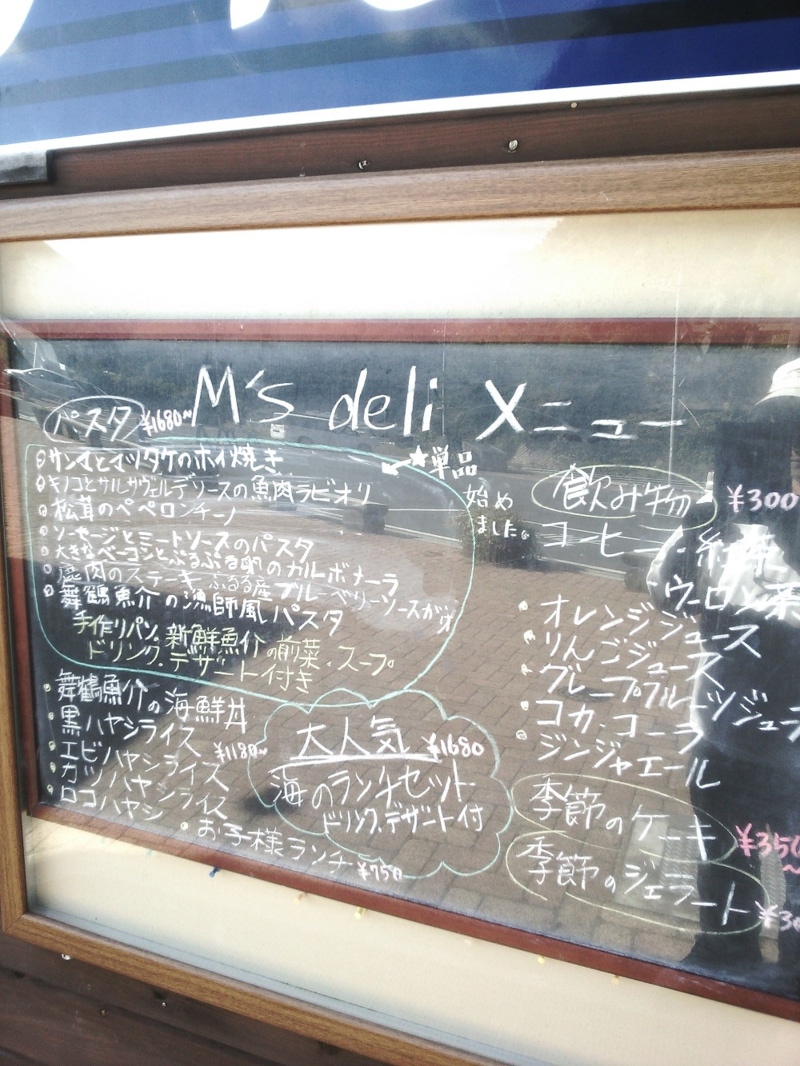 M's deli メニュー
パスタ ¥1680~
★単品
始め
ました。
サンマとマツタケのホイル焼き
キノコとサルサヴェルデソースの魚肉ラビオリ
松茸のペペロンチーノ
ソーセージとミートソースのパスタ
大きなベーコンとぷるぷる卵のカルボナーラ
鹿肉のステーキ ブルーベリーソース
舞鶴魚介の漁師風パスタ
手作りパン、新鮮魚介の前菜・スープ
ドリンク、デザート付き
舞鶴魚介の海鮮丼
黒ハヤシライス
エビハヤシライス ¥1180~
カツハヤシライス
ロコハヤシ
お子様ランチ ¥750
大人気 ¥1680
海のランチセット
ドリンク、デザート付
飲み物 ¥300
コーヒー・紅茶
ウーロン茶
オレンジジュース
りんごジュース
グレープフルーツジュース
コカ・コーラ
ジンジャエール
季節のケーキ ¥350~
季節のジェラート